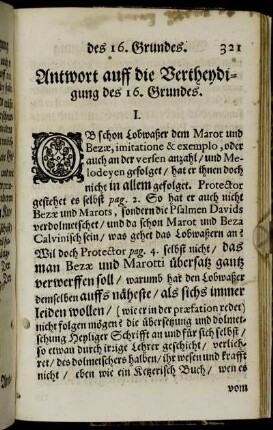 des 16. Grundes. 321
Antwort auff die Vertheydi-
gung des 16. Grundes.
I.
OB schon Lobwaßer dem Marot und
Bezæ, imitatione & exemplo, oder
auch an der versen anzahl / und Me-
lodeyen gefolget / hat er ihnen doch
nicht in allem gefolget. Protector
gestehet es selbst pag. 2. So hat er auch nicht
Bezæ und Marots, sondern die Psalmen Davids
verdolmetschet / und da schon Marot und Beza
Calvinisch sein / was gehet das Lobwaßern an?
Wil doch Protector pag. 4. selbst nicht / das
man Bezæ und Marotti übersatz gantz
verwerffen soll / warumb hat den Lobwaßer
demselben auffs näheste / als sichs immer
leiden wollen / (wie er in der præfation redet)
nicht folgen mögen? die übersetzung und dolmet-
schung Heyliger Schrifft an und für sich selbst /
so etwan durch irrige Lehrer geschicht / verlich-
ret / des dolmetschers halben / ihr wesen und krafft
nicht / eben wie ein Ketzerisch Buch / wen es
vom